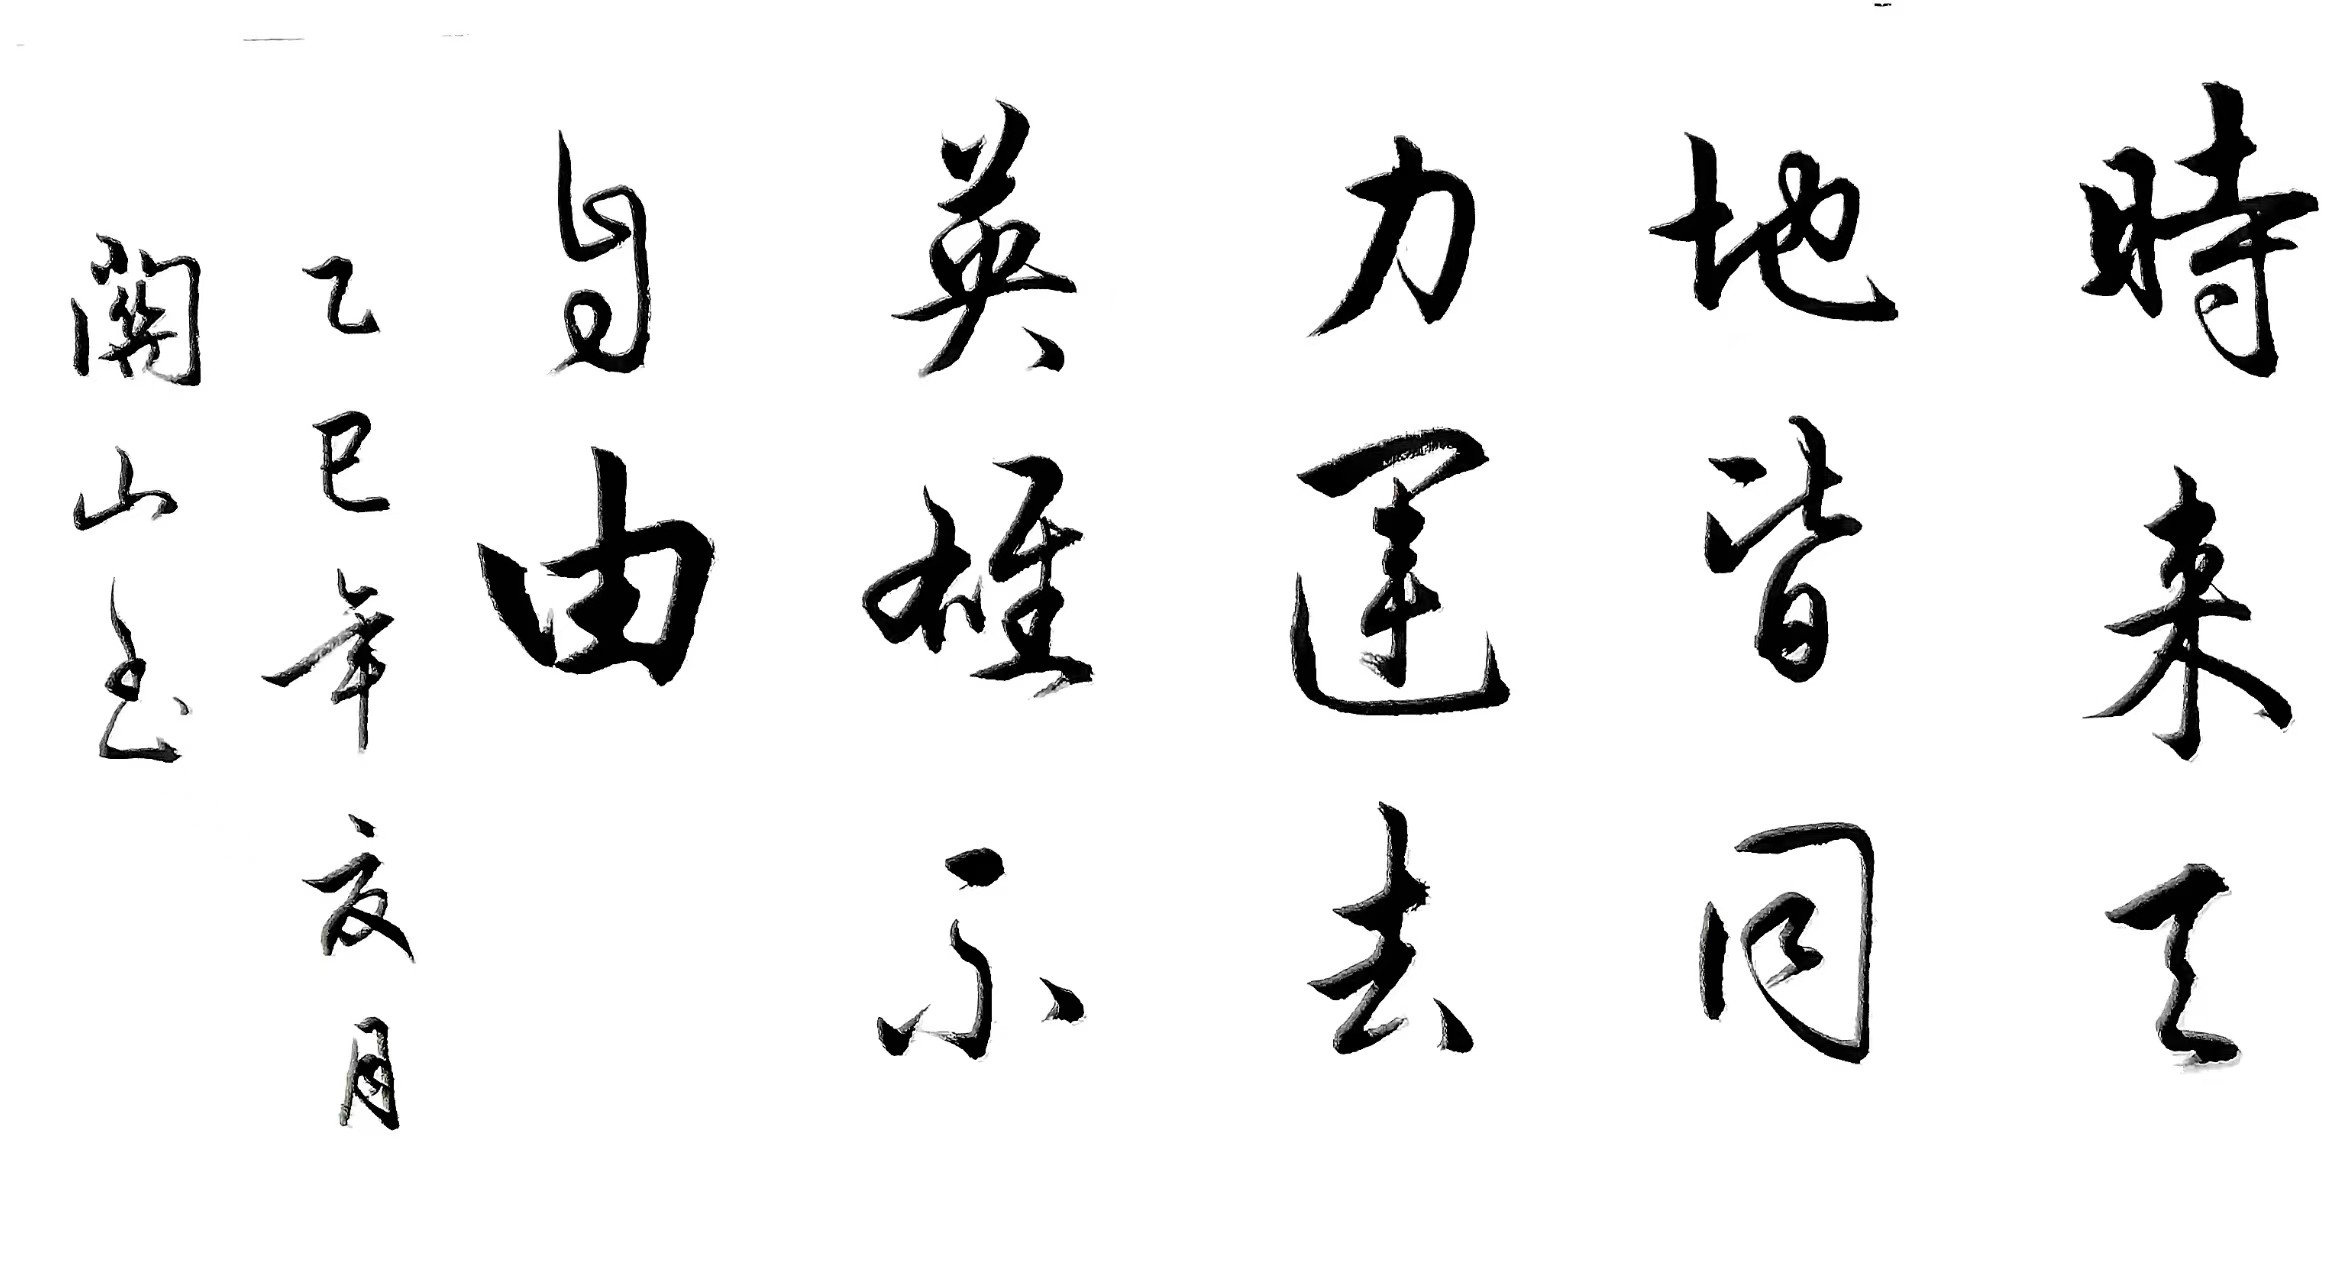 時来天
地皆同
力運去
英雄不
自由
乙巳年夏月
關山玉